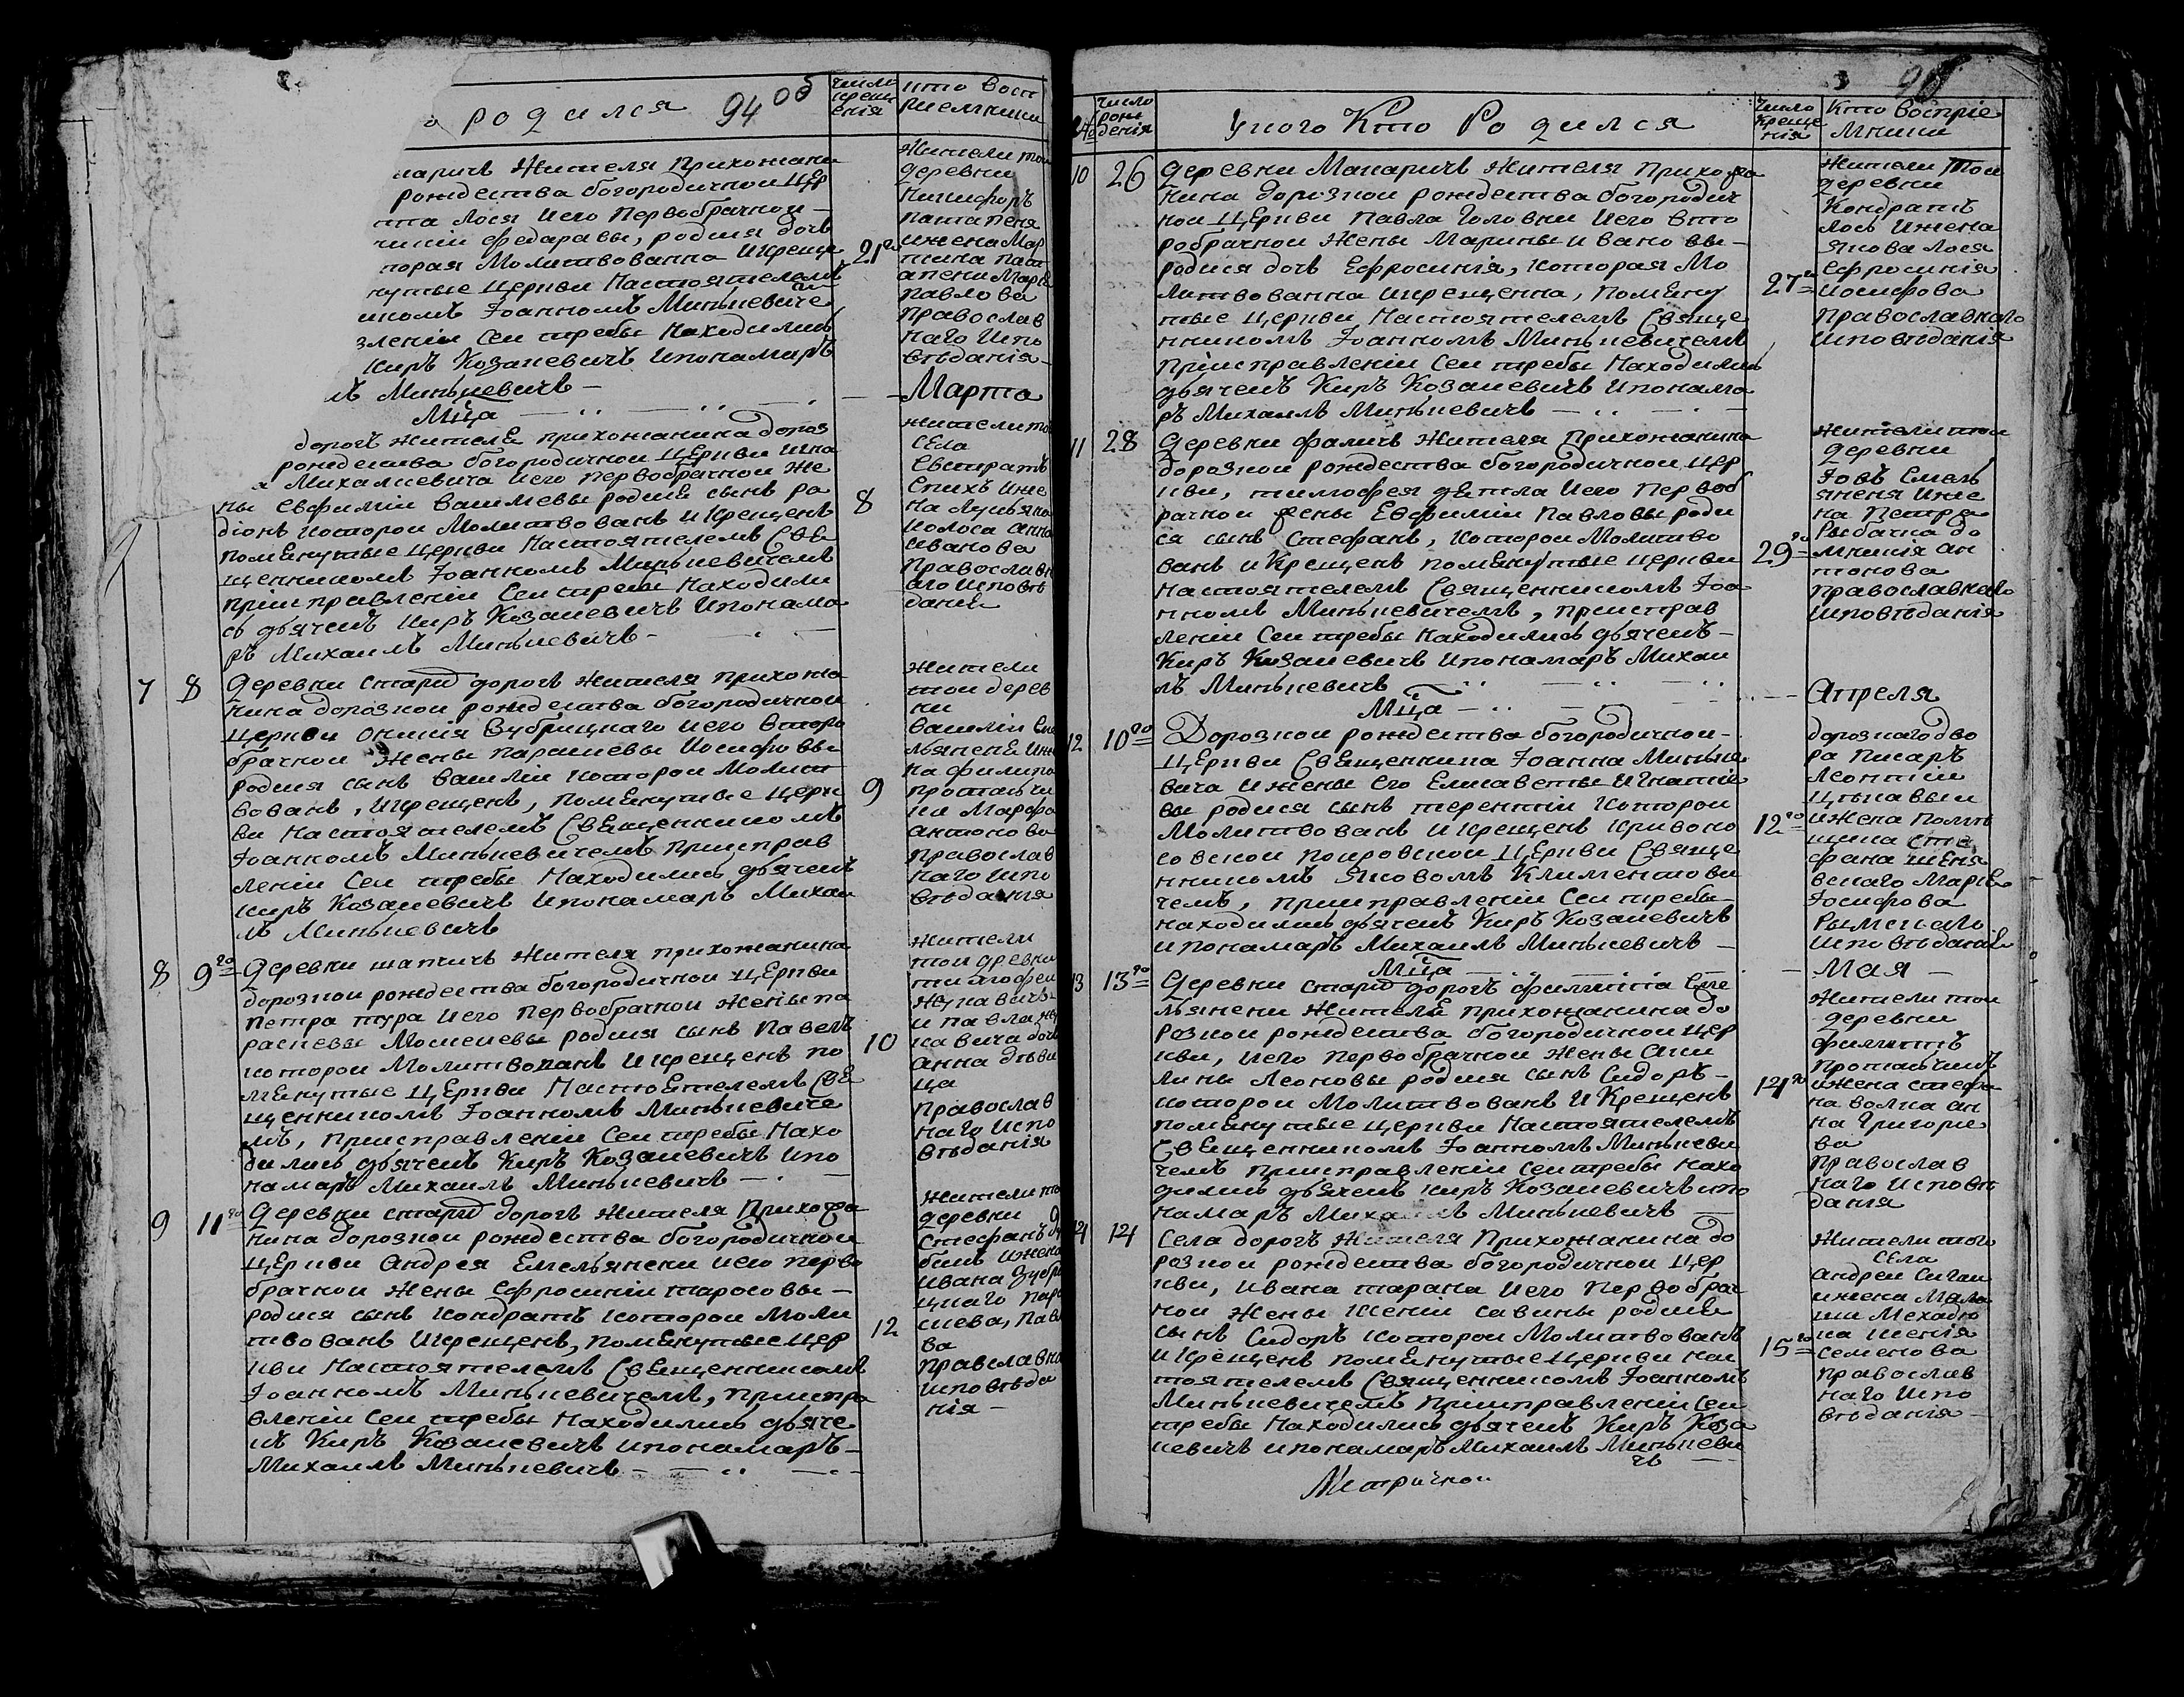 родился 94об
число
креще
енія
кто восп
риемники
маричь Жителя Прихожани
рождества богородичнои цер
Лося и его Первобрачнои
федаравы, родися дочь
торая Молитвованна и Креще
нутые Церкви Настоятелемъ
иномъ Іоанномъ Минкевиче
влении сеи требы Находились
Киръ Козакевичъ и понамаръ
лъ Минкевичъ
21го
Жители тои
деревни
Никифоръ
Патапеня
и жена Мар
тина пат
апени Марья
павлова
православ
наго испо
вѣданія
Мца
Марта
дорогъ жителя прихожанина дороз
рождества богородичнои Церкви
Михалкевича и его первобрачнои же
ны Евфиміи Василевы родися сынъ ра
діонъ которои Молитвованъ и Крещенъ
помянутые Церкви Настоятелемъ Свя
щенникомъ Іоанномъ Минкевичемъ
при исправлении Сеи требы Находили
сь дьячекъ Киръ Козакевичъ и понама
ръ Михаилъ Минкевичъ
8
жители то
села
Евстратъ
на Лукьяна
колоса Анна
иванова
православн
аго исповѣ
данія
7 8
деревни старыд дорогъ жителя прихожа
нина дорознои рождества богородичнои
Церкви Зубрицкаго и его второ
брачнои жены параскевы Иосифовы
родися сынъ Василіи которои Молит
вованъ, и Крещенъ, помянутые Церк
ви Настоятелемъ Священникомъ
Іоанномъ Минкевичемъ при исправ
лении Сеи требы Находились дьячекъ
Киръ Козакевичъ и понамаръ Михаи
лъ Минкевичъ
9
жители
тои дерев
ни
василіи
на филипа
Марфа
антонова
православ
наго испо
вѣданія
8 9го
деревни шапчичъ жителя прихожанина
дорознои рождества богородичнои Церкви
петра тура и его первобрачнои жены па
раскевы Мосиевы родися сынъ Павелъ
которои Молитвованъ и Крещенъ по
мянутые Церкви Настоятелемъ Свя
щенникомъ Іоанномъ Минкевиче
мъ, при исправлении Сеи требы Нахо
дились дьячекъ Киръ Козакевичъ и по
намаръ Михаилъ Минкевичъ
10
жители
тои древни
тимофеи
жукавичъ
и павла жу
кавича дочь
анна дѣви
ца
православ
наго испо
вѣданія
9 11го
деревни старыд дорогъ жителя прихожа
нина дорознои рождества богородичнои
Церкви Андрея Емельянени и его перво
брачнои жены Ефросиніи таросовы
родися сынъ Кондратъ которои Моли
твованъ и Крещенъ, помянутые Цер
кви Настоятелемъ Священникомъ
Іоанномъ Минкевичемъ, при испра
влении сеи требы Находились дьяче
къ Киръ Козакевичъ и понамаръ
Михаилъ Минкевичъ
12
жители то
деревни
Стефанъ
и жена
ивана Зубри
цкаго пара
скева, павло
ва
православна
исповѣда
нія
95
число
рож
денія
У кого Кто Родился
число
креще
нія
Кто воспріе
мники
10 26
деревни Макаричъ жителя Прихожа
нина дорознои рождества богородич
нои Церкви Павла Головни и его вто
робрачнои жены Марины ивановы
родися дочь Ефросинія, которая Мо
литвованна и крещенна, помяну
тые Церкви Настоятелемъ Свяще
нникомъ Іоанномъ Минкевичемъ
при исправлении Сеи требы Находились
дьячекъ Киръ Козакевичъ и понама
ръ Михаилъ Минкевичъ
27го
Жители Тои
деревни
Кондратъ
Лось и жена
якова Лося
Ефросинія
иосифова
православнаго
исповѣданія
11 28
деревни фаличъ жителя Прихожанина
дорознои рождества богородичнои цер
кви, тимофея дѣтла и его Первоб
рачнои жены Евфиміи Павловы роди
ся сынъ Стефанъ, которои Молитво
ванъ и Крещенъ помянутые церкви
Настоятелемъ Священникомъ Іоа
нномъ Минкевичемъ, при исправ
лении Сеи требы Находились дьячекъ
Киръ Козакевичъ и понамаръ Михаи
лъ Минкевичъ
29го
жители тои
деревни
Іовъ Емель
яненя и же
на Петра
Рыбачка до
мникія ан
тонова
православнаго
исповѣданія
Мца
Апреля
12 10го
Дорознои рождества богородичнои
Церкви Священника Іоанна Минке
вича и жены Его Елисаветы Игнатіе
вы родися сынъ терентіи которои
Молитвованъ и Крещенъ Кривоно
совскои покровскои Церкви Свяще
нникомъ Яковомъ Климентови
чемъ, при исправлении Сеи требы
находились дьячекъ Киръ Козакевичъ
и понамаръ Михаилъ Минкевичъ
12го
дорознаго дво
ра писаръ
Леонтіи
и жена
сте
фана
Марья
Іосифова
Римскаго
исповѣданія
Мца
Мая
13 13го
деревни старыд дорогъ филиппа Еме
льянени жителя прихожанина до
рознои рождества богородичнои цер
кви, и его первобрачнои жены Аки
лины Леоновы родися сынъ Сидоръ
которои Молитвованъ и Крещенъ
помянутые церкви Настоятелемъ
Священникомъ Іоанномъ Минкеви
чемъ при исправлении сеи требы нахо
дились дьячекъ Киръ Козакевичъ и по
намаръ Михаилъ Минкевичъ
14го
жители тои
деревни
филиппъ
и жена стефа
на волка ан
на Григорие
ва
православ
наго исповѣ
данія
14 14
Села дорогъ жителя Прихожанина до
рознои рождества богородичнои Цер
кви, ивана тарана и его Первобрач
нои жены Ксеніи савины родися
сынъ Сидоръ которои Молитвованъ
и Крещенъ помянутые Церкви нас
тоятелемъ Священникомъ Іоанномъ
Минкевичемъ При исправлении Сеи
требы Находились дьячекъ Киръ Коза
кевичъ и понамаръ Михаилъ Минкеви
чъ
15го
Жители того
села
Андреи
и жена
ксенія
семенова
православ
наго испо
вѣданія
Метричнои